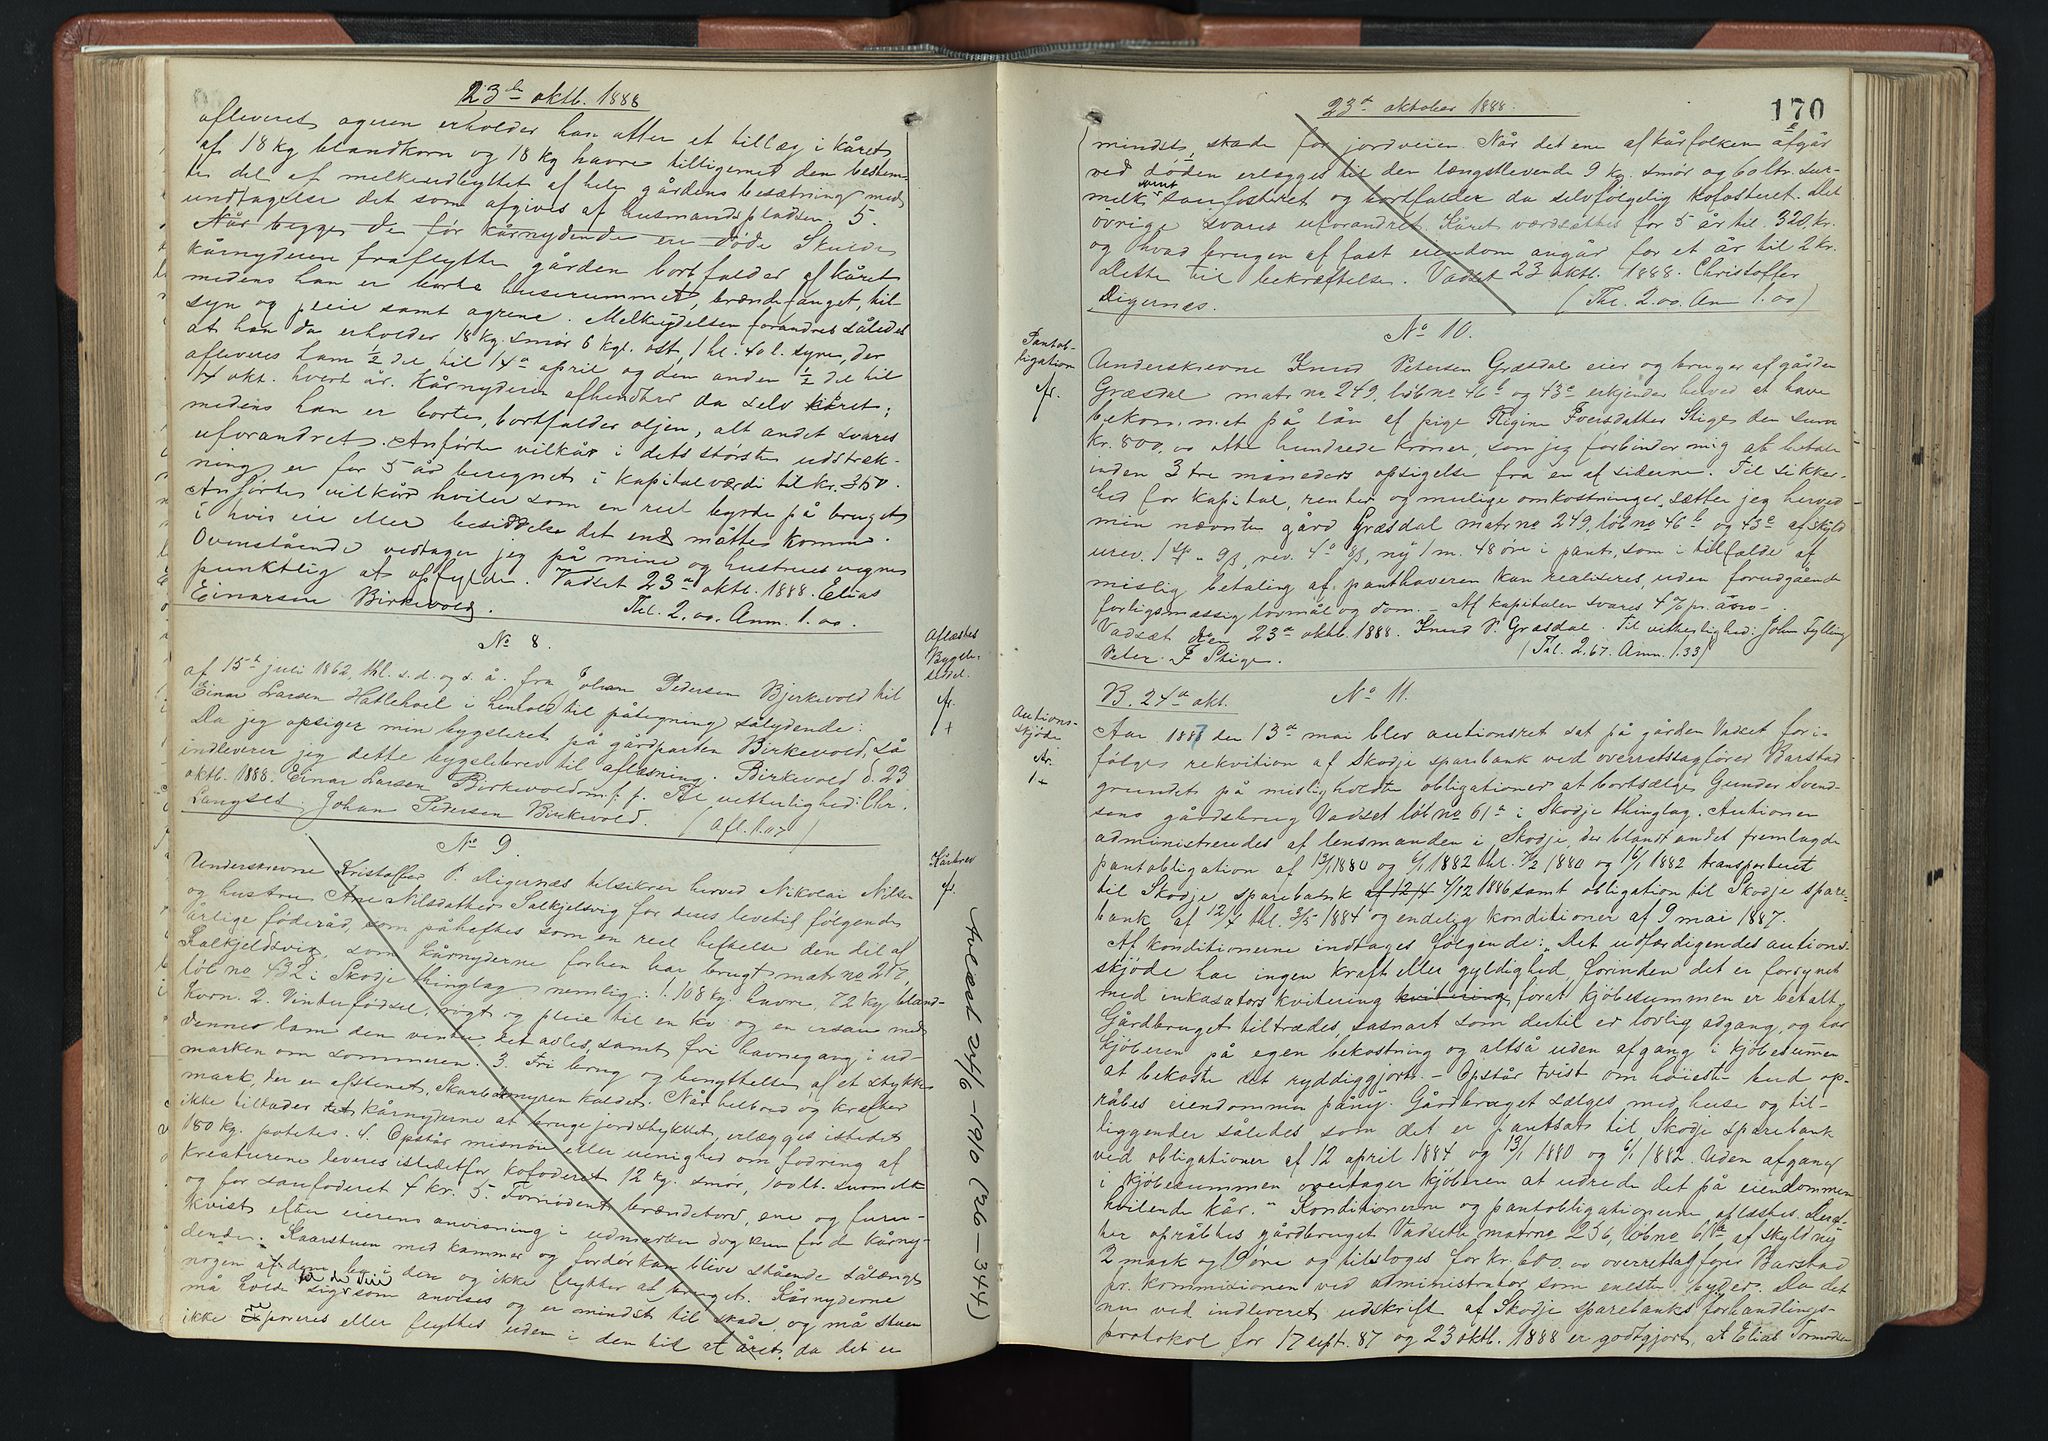 23de oktb. 1888
afleveret ageren erholder han atter et tillæg i kåret
af 18 kg blandkorn og 18 kg havre tilligemed den bestem
te del af melkeudbyttet af hele gårdens besætning med
undtagelse det som afgives af husmandspladsen. 5.
Når begge de før kårnydende ere døde Skulde
kårnyderen fraflytte gården bortfalder af kåret
medens han er borte huserummet, brændefanget, til-
syn og pleie samt agrene. Melkeydelsen forandres således
at han da erholder 18 kg. smør 6 kgl. ost, 1 hl. 40 l. syre, der
afleveres ham 1/2 del til 14de april og den anden 1/2 del til
14 okt. hvert år. Kårnyderen afhendter da selv kåret;
medens han er borte, bortfalder oljen, alt andet svares
uforandret. Anførte vilkår i dets største udstræk-
ning er for 5 år beregnet i kapitalværdi til kr. 350.
Anførte vilkår hviler som en reel byrde på bruget
i hvis eie eller besiddelse det end måtte komme.
Ovenstående vedtager jeg på mine og hustrues vegne
punktlig at opfylde. Vadset 23de oktb. 1888. Elias
Einarsen Birkevold. Thl. 2.00. Anm. 1.00.
No 8.
Aflæstes
Bygle-
seddel.
af 15de juli 1862, thl. s. d. og s. å. fra Johan Pedersen Bjerkevold til
Einar Larsen Hatlehoel i henhold til påtegning sålydende:
Da jeg opsiger min bygsleret på gårdparten Birkevold, så
indleverer jeg dette bygslebrev til aflæsning. Birkevold d. 23
oktb. 1888. Einar Larsen Birkevold m. f. p. Til vetterlighed: Chr.
Langset. Johan Pedersen Birkevold. (Afl. 1.07)
No 9.
Kårbrev
Underskrevne Kristoffer P. Digernæs tilsikrer herved Nikolai Nilsen
og hustru Ane Nilsdatter Salkjelsvig for deres levetid følgende
årlige føderåd, som påheftes som en reel heftelse den del af
Salkjeldsvig, som kårnyderne forhen har brugt matr no 217,
løb no 432 i Skodje thinglag, nemlig: 1. 108 kg. havre, 72 kg. bland-
korn. 2. Vinterfødsel, røgt og pleie til en ko og en ersau med
dennes lam den vinter, det avles, samt fri havnegang i ud-
marken om sommeren. 3. Fri brug og benyttelse af et stykke
mark, der er afstenet, Skarbømyren kaldet. Når helbred og kræfter
ikke tillader kårnyderne at bruge jordstykket, erlægges istedet
180 kg. potetes. 4. Opstår misnøie eller uenighed om fodring af
kreaturene leveres istedetfor kofoderet 12 kg. smør, 100 lt. suremelk
og for saufoderet 4 kr. 5. Fornødent brændetorv, ene og furu-
kvist efter eierens anvisning i udmarken dog kun for de kårny-
dende. Kaarstuen med kammer og fordør kan blive stående sålænge
nogen af dem bor i dere og ikke flytter at bruget. Kårnyderne
må holde sig til de Veie som anvises og er mindst til skade, og må stuen
ikke spoveres eller flyttes uden i den til at året, da det er
Aflæst 24/6-1910 (26-344)
170
23de oktober 1888.
mindst skade for jordveien. Når det ene af kårfolkene afgår
ved døden erlægges til den længstlevende 9 kg. smør og 60 ltr. sur-
melk samt saufosteret og bortfalder da selvfølgelig kofosteret. Det
øvrige svares uforandret. Kåret værdsættes for 5 år til 320 kr.
og hvad brugen af fast eiendom angår for et år til 2 kr.
Dette til bekræftelse. Vadset 23 oktb. 1888. Christoffer
Digernes. (Thl. 2.00. Anm 1.00)
No 10.
Pantob-
ligation
Underskrevne Knud Petersen Græsdal eier og bruger af gården
Græsdal matr no 249, løb no 46b og 43a erkjender herved at have
bekommet på lån af pige Regine Iversdatter Stige den sum
kr. 800,00 otte hundrede kroner, som jeg forbinder mig at betale
inden 3 tre måneders opsigelse fra en af siderne. Til sikker-
hed for kapital, renter og mulige omkostninger, sætter jeg herved
min nævnte gård Græsdal matr no 249, løb no 46b og 43a af skyld
urev. 1 sp " 9 ß, rev. 4 o 8 ß, ny 1 m. 48 øre i pant, som i tilfælde af
mislig betaling af panthaveren kan realiseres, uden forudgående
forligsmæssig lovmål og dom. - Af kapitalen svares 4 % pr. åno.
Vadsæt den 23de oktb. 1888. Knud P. Græsdal. Til vitterlighed: John Fylling
Peter F Stige. (Thl. 2.67. Anm. 1.33)
B. 24de okt. No 11.
Auctions-
skjøde
Aar 1887 den 13de mai blev auctionsret sat på gården Vadset i
følge rekvition af Skodje sparebank ved overretssagfører Barstad
grundet på misligholdte obligationer at bortsælge Gunder Svend-
sens gårdsbrug Vadset løb no 61a i Skodje thinglag. Auctionen
administreredes af lensmanden i Skodje, der blandt andet fremlagde
pantobligation af 13/1 1880 og 6/1 1882 thl. 7/2 1880 og 16/1 1882 transporteret
til Skodje sparebank af 12/4 4/12 1886 samt obligation til Skodje spare-
bank af 12/4 thl. 3/5 1884 og endelig konditioner af 9 mai 1887.
Af konditionerne indtages følgende: "Det udfærdigendes auctions-
skjøde har ingen kraft eller gyldighed, forinden det er forsynet
med inkasators kvitering kvitering, forat kjøbesummen er betalt,
Gårdbruget tiltrædes, sasnart som dertil er lovlig adgang, og har
kjøberen på egen bekostning og altså uden afgang i kjøbesummen
at bekoste det ryddiggjort. - Opstår tvist om høieste bud op-
råbes eiendommen påny. Gårdbruget sælges med huse og til-
liggender således som det er pantsat til Skodje sparebank
ved obligationer af 12 april 1884 og 13/1 1880 og 6/1 1882. Uden afgang
i kjøbesummen overtager kjøberen at udrede det på eiendommen
hvilende kår." Konditionerne og pantobligationerne aflæstes. Deref-
ter opråbtes gårdbruget Vadsete matr no 236, løb no 61a af skyld ny
2 mark og 19 øre og tilsloges for kr. 600.00 overretssagfører Barstad
pr. kommisionen ved administrator som eneste byder. Da det
nu ved indleveret udskrift af Skodje sparebanks forhandlings-
protokol for 17 sept. 87 og 23 oktb. 1888 er godtgjort, at Elias Tormodsen